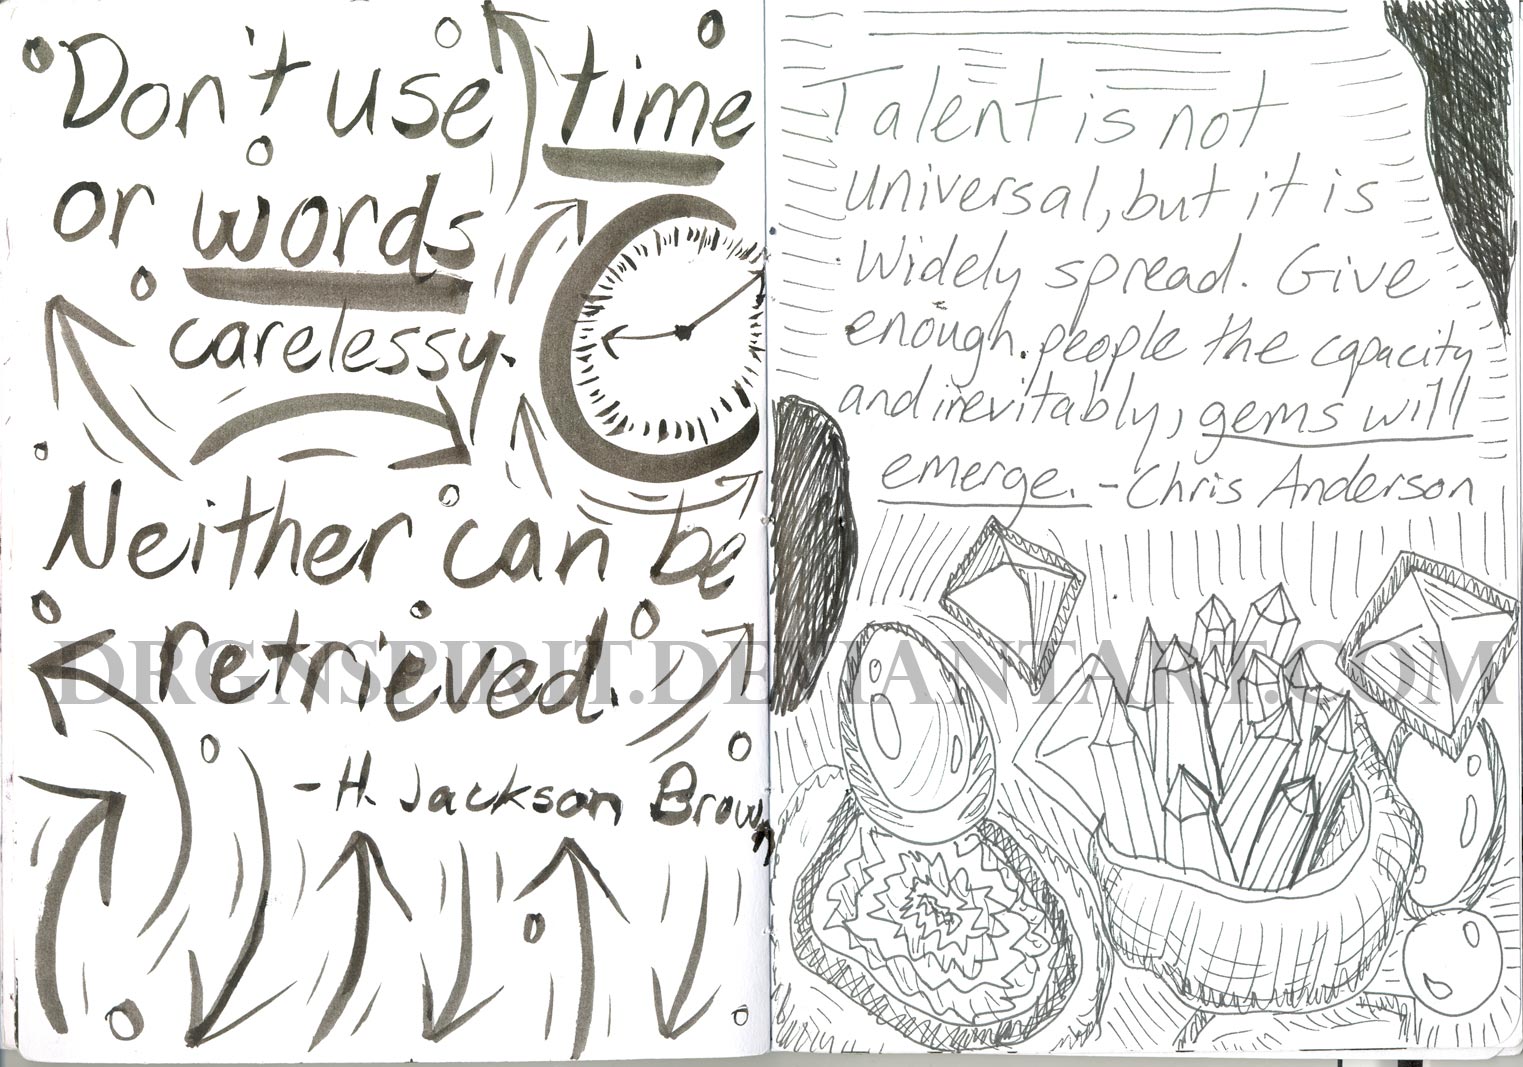 Don't use time
or words
carelessy.
Neither can be
retrieved.
-H. Jackson Brown
Talent is not
universal, but it is
widely spread. Give
enough people the capacity
and inevitably, gems will
emerge. -Chris Anderson
DRGNSPIRIT.DEVIANTART.COM